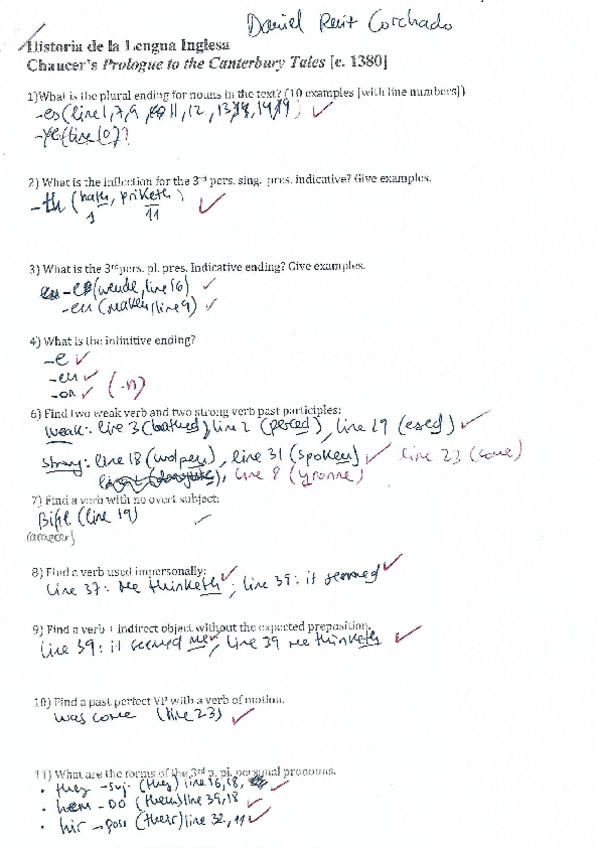 Daniel Ruiz Corchado
Historia de la Lengua Inglesa
Chaucer's Prologue to the Canterbury Tales [c. 1380]
1)What is the plural ending for nouns in the text? (10 examples [with line numbers])
-es (line 1,7,9, 11, 12, 13,
-ye (line 10)?
2) What is the inflection for the 3rd pers. sing. pres. indicative? Give examples.
-th (hath, priketh)
1 11
3) What is the 3rd pers. pl. pres. Indicative ending? Give examples.
-e (wende, line 16)
-en (maken, line 9)
4) What is the infinitive ending?
-e
-en
-on (-n)
6) Find two weak verb and two strong verb past participles:
weak: line 3 (bathed), line 2 (perced), line 29 (esed)
strong: line 18 (holpen), line 31 (spoken) line 23 (come)
line 8 (yronne)
7) Find a verb with no overt subject:
Bifil (line 19)
8) Find a verb used impersonally:
line 37: me thinketh; line 39: it semed
9) Find a verb + indirect object without the expected preposition.
line 39: it seemed me, line 39 me thinketh
10) Find a past perfect VP with a verb of motion.
was come (line 23)
11) What are the forms of the 3rd p. pl. personal pronouns.
• they - Suj. (they) line 16,18,
• hem - DO (them) line 39,18
• hir - poss (their) line 32, 11